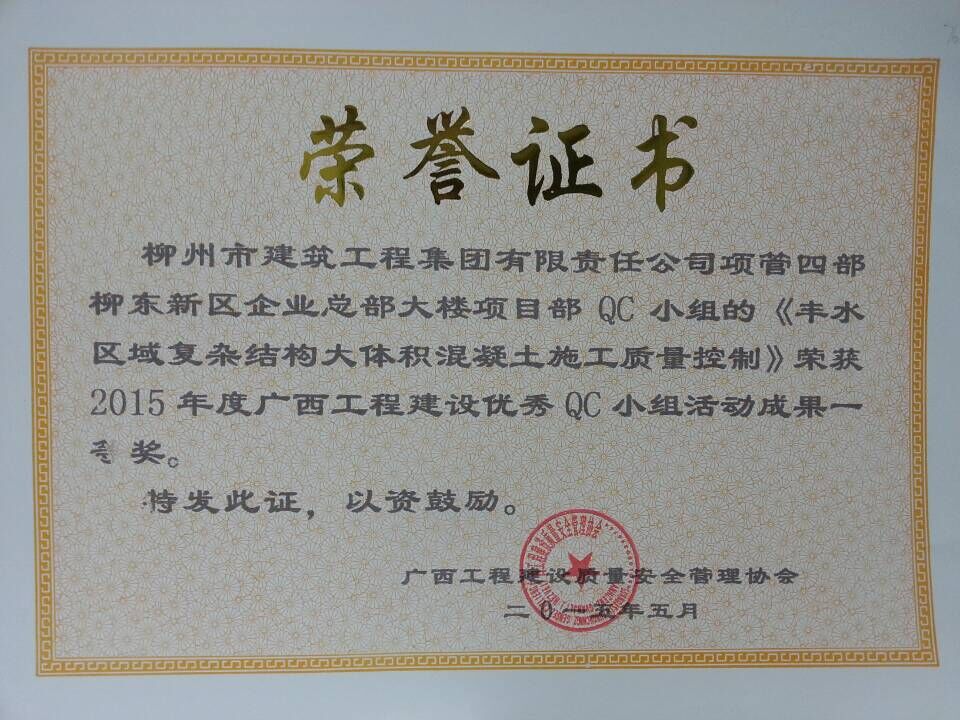 荣誉证书
柳州市建筑工程集团有限责任公司项管四部
柳东新区企业总部大楼项目部 QC 小组的《丰水
区域复杂结构大体积混凝土施工质量控制》荣获
2015 年度广西工程建设优秀 QC 小组活动成果一
等奖。
特发此证，以资鼓励。
广西工程建设质量安全管理协会
二0一五年五月